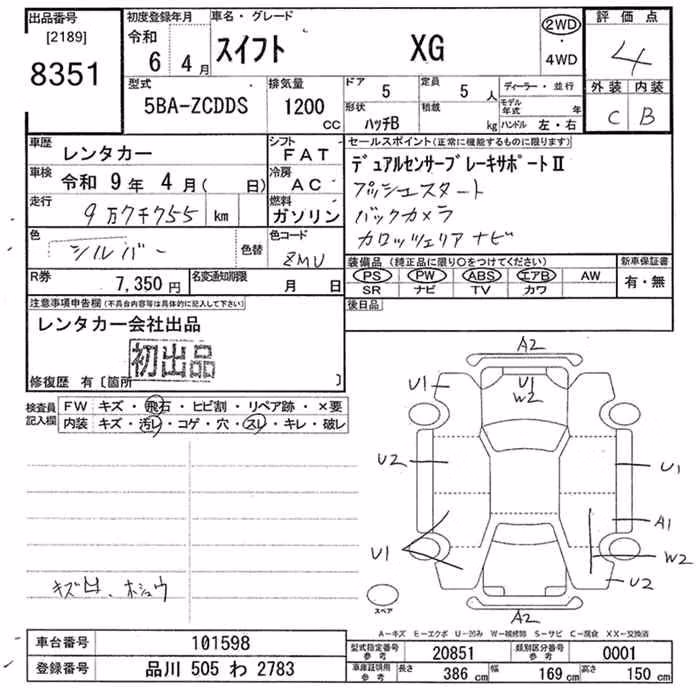 出品番号
[2189]
8351
初度登録年月
令和
6 4月
車名・グレード
スイフト XG
2WD
・
4WD
評価点
4
外装 内装
C B
型式
5BA-ZCDDS
排気量
1200
CC
ドア
5
定員
5 人
形状
ハッチB
積載
kg
ディーラー・並行
モデル年式 年
ハンドル 左・右
車歴
レンタカー
シフト
FAT
車検
令和 9年 4月( 日)
冷房
AC
走行
9万7千755 km
燃料
ガソリン
色
シルバー
色替
色コード
ZMU
R券
7,350円
名変通知期限
月 日
セールスポイント(正常に機能するものに限ります)
デュアルセンサーブレーキサポートⅡ
プッシュスタート
バックカメラ
カロッツェリアナビ
装備品(純正品に限り○をつけてください)
PS PW ABS エアB AW
SR ナビ TV カワ
新車保証書
有・無
後日品
注意事項申告欄(不具合内容等は具体的に記入して下さい)
レンタカー会社出品
初出品
修復歴 有〔箇所 〕
検査員
記入欄
FW キズ・飛石・ヒビ割・リペア跡・×要
内装 キズ・汚レ・コゲ・穴・スレ・キレ・破レ
A2
U1
U1
W2
U2
U1
A1
U1
W2
U2
A2
スペア
キズ凹、ホシュウ
A-キズ E-エクボ U-凹み W-補修跡 S-サビ C-腐食 XX-交換済
車台番号
101598
登録番号
品川 505 わ 2783
型式指定番号
参考
20851
類別区分番号
参考
0001
車庫証明用
参考
長さ 386 cm 幅 169 cm 高さ 150 cm